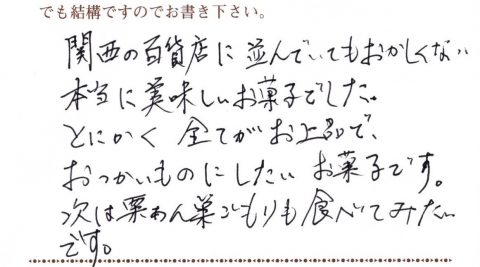 でも結構ですのでお書き下さい。
関西の百貨店に並んでいてもおかしくない
本当に美味しいお菓子でした。
とにかく全てがお上品で、
おつかいものにしたいお菓子です。
次は栗あん巣ごもりも食べてみたい
です。